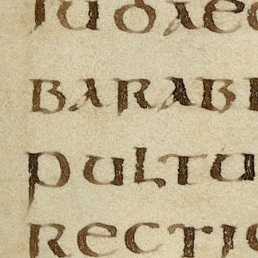 iudae
barabb
pultu
rectio